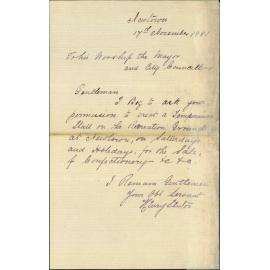 Newtown
17th November 1901
To his Worship the Mayor
and City Councillors
Gentlemen
I Beg to ask your
permission to erect a Temperance
Stall on the Recreation Ground
at Newtown, on Saturdays
and Holidays, for the Sale
of Confectionery &c &c
I Remain Gentlemen
Your Obt Servant